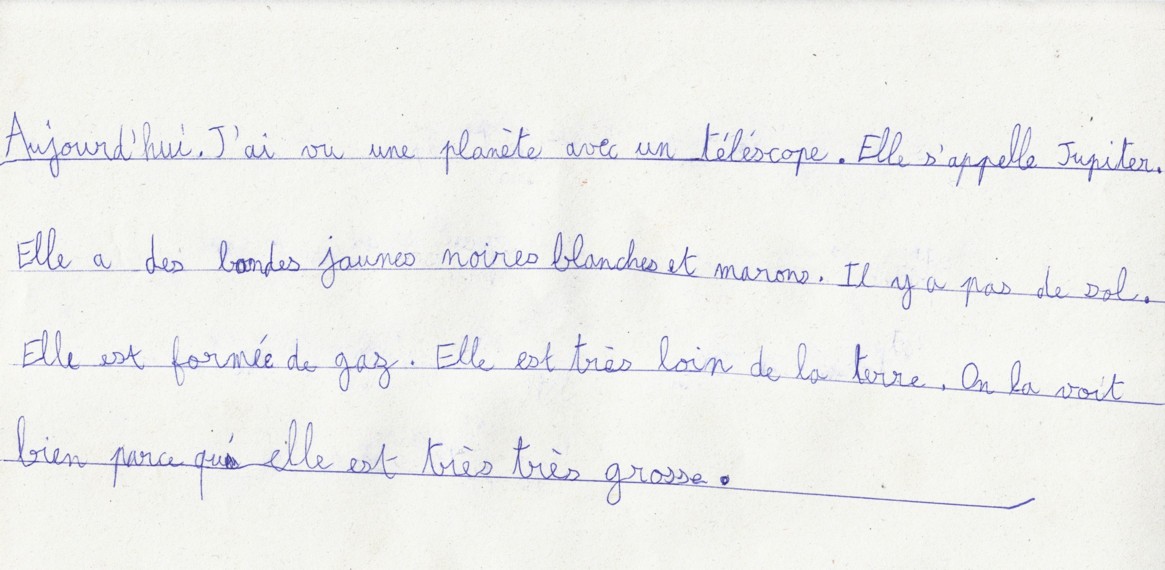 Aujourd'hui. J'ai vu une planète avec un téléscope. Elle s'appelle Jupiter.
Elle a des bandes jaunes noires blanches et marons. Il y a pas de sol.
Elle est formée de gaz. Elle est très loin de la terre. On la voit
bien parce qu' elle est très très grosse.